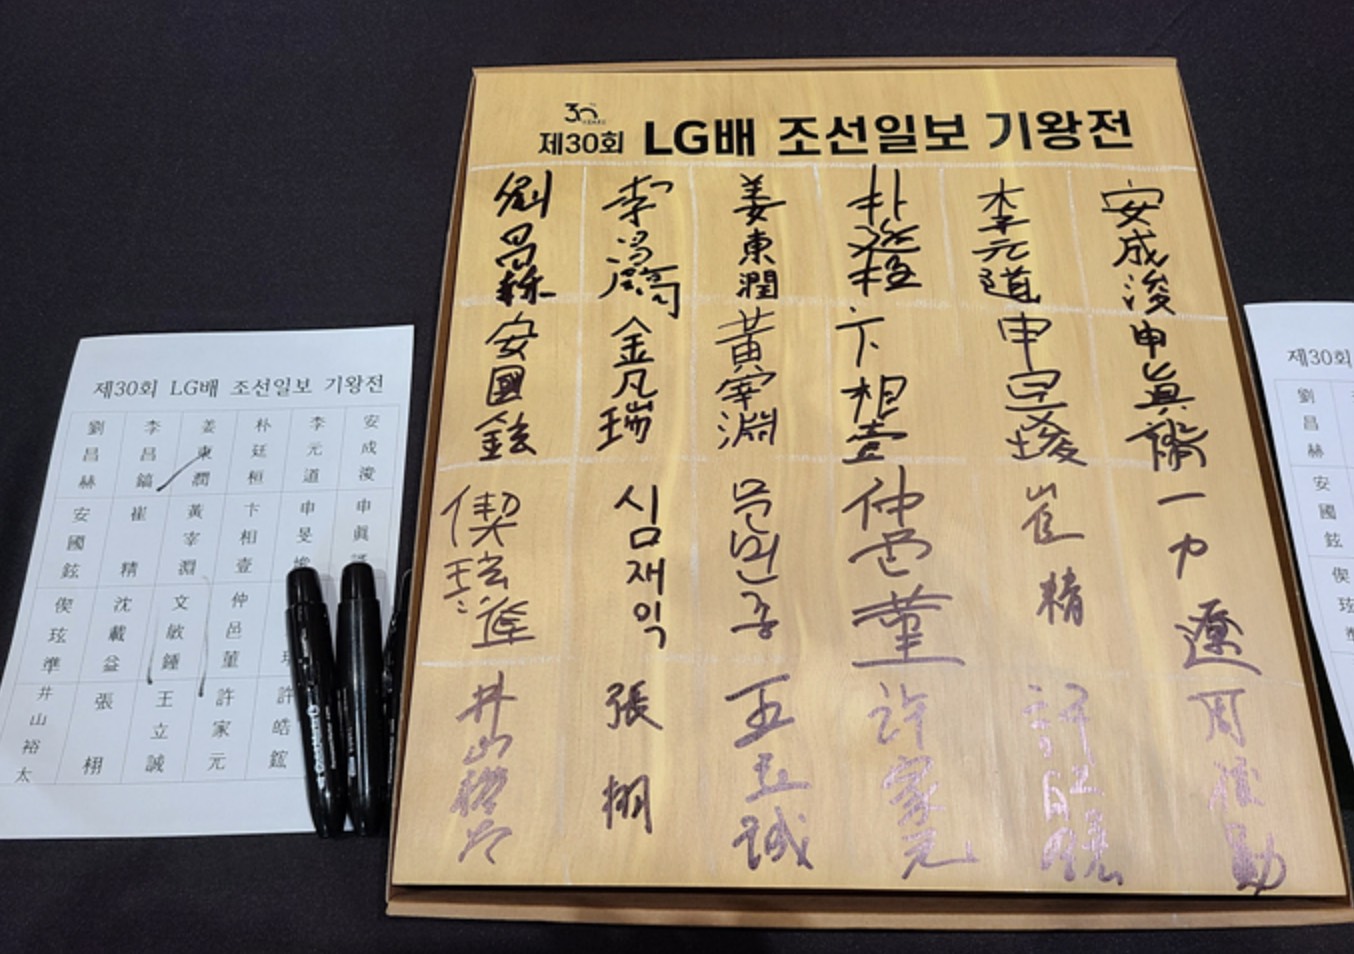 30
YEARS
제30회 LG배 조선일보 기왕전
劉昌赫
李昌鎬
姜東潤
朴廷桓
李元道
安成浚
安國鉉
金凡瑞
黃宰淵
卞相壹
申旻埈
申眞諝
偰玹準
심재익
문민종
仲邑菫
崔精
一力遼
井山裕太
張栩
王立誠
許家元
許皓鋐
제30회 LG배 조선일보 기왕전
劉昌赫
李昌鎬
姜東潤
朴廷桓
李元道
安成浚
安國鉉
崔精
黃宰淵
卞相壹
申旻埈
申眞
偰玹準
沈載益
文敏鍾
仲邑菫
井山裕太
張栩
王立誠
許家元
許皓鋐
제30회
劉昌赫
安國鉉
偰玹